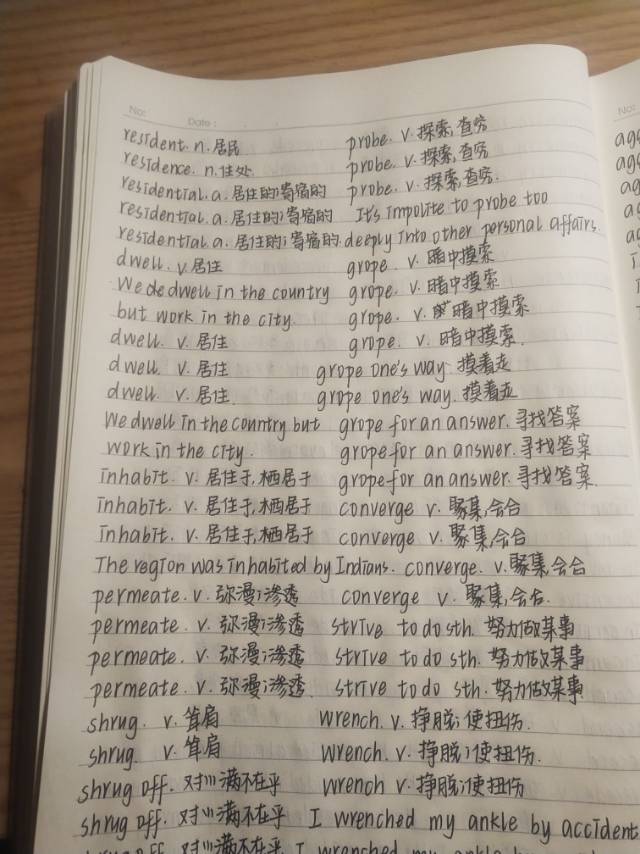 No:
Date:
resident. n. 居民 probe. v. 探索,查穷
residence. n. 住处 probe. v. 探索,查穷
residential. a. 居住的;寄宿的 probe. v. 探索,查穷.
residential. a. 居住的;寄宿的 It's impolite to probe too
residential. a. 居住的;寄宿的. deeply into other personal affairs.
dwell. v. 居住 grope. v. 暗中摸索
We de dwell in the country grope. v. 暗中摸索
but work in the city. grope. v. 暗中摸索
dwell. v. 居住 grope. v. 暗中摸索.
dwell. v. 居住 grope one's way. 摸着走
dwell. v. 居住. grope one's way. 摸着走
We dwell in the country but grope for an answer. 寻找答案
work in the city. grope for an answer. 寻找答案
inhabit. v. 居住于,栖居于 grope for an answer. 寻找答案.
inhabit. v. 居住于,栖居于 converge v. 聚集,会合
inhabit. v. 居住于,栖居于 converge v. 聚集,会合
The region was inhabited by Indians. converge. v. 聚集,会合
permeate. v. 弥漫;渗透 converge v. 聚集,会合.
permeate. v. 弥漫;渗透 strive to do sth. 努力做某事
permeate. v. 弥漫;渗透 strive to do sth. 努力做某事
permeate. v. 弥漫;渗透. strive to do sth. 努力做某事
shrug. v. 耸肩 wrench. v. 挣脱;使扭伤.
shrug. v. 耸肩 wrench. v. 挣脱;使扭伤.
shrug off. 对///满不在乎 wrench v. 挣脱;使扭伤
shrug off. 对///满不在乎 I wrenched my ankle by accident
shrug off. 对///满不在乎 I wrenched my ankle
No: